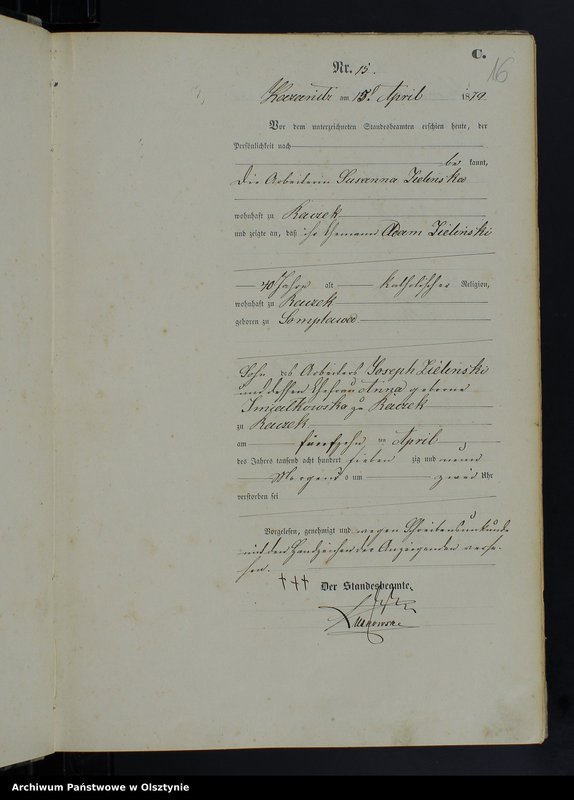 C.
16
Nr. 15.
am 15. April 1879
Vor dem unterzeichneten Standesbeamten erschien heute, der
Persönlichkeit nach
be kannt,
die Arbeiterin Susanna Zielinska
wohnhaft zu Raczek
und zeigte an, daß ihr Ehemann Adam Zielinski
40 Jahre alt katholischer Religion,
wohnhaft zu Raczek
geboren zu Somplawa
Sohn des Arbeiters Joseph Zielinski
und dessen Ehefrau Anna geborne
zu Raczek
zu Raczek
am fünfzehn ten April
des Jahres tausend acht hundert sieben zig und neun
Morgens um zwei Uhr
verstorben sei
Vorgelesen, genehmigt und wegen Schreibensunkunde
mit den Handzeichen der Anzeigenden verse-
hen.
+++
Der Standesbeamte.
Archiwum Państwowe w Olsztynie